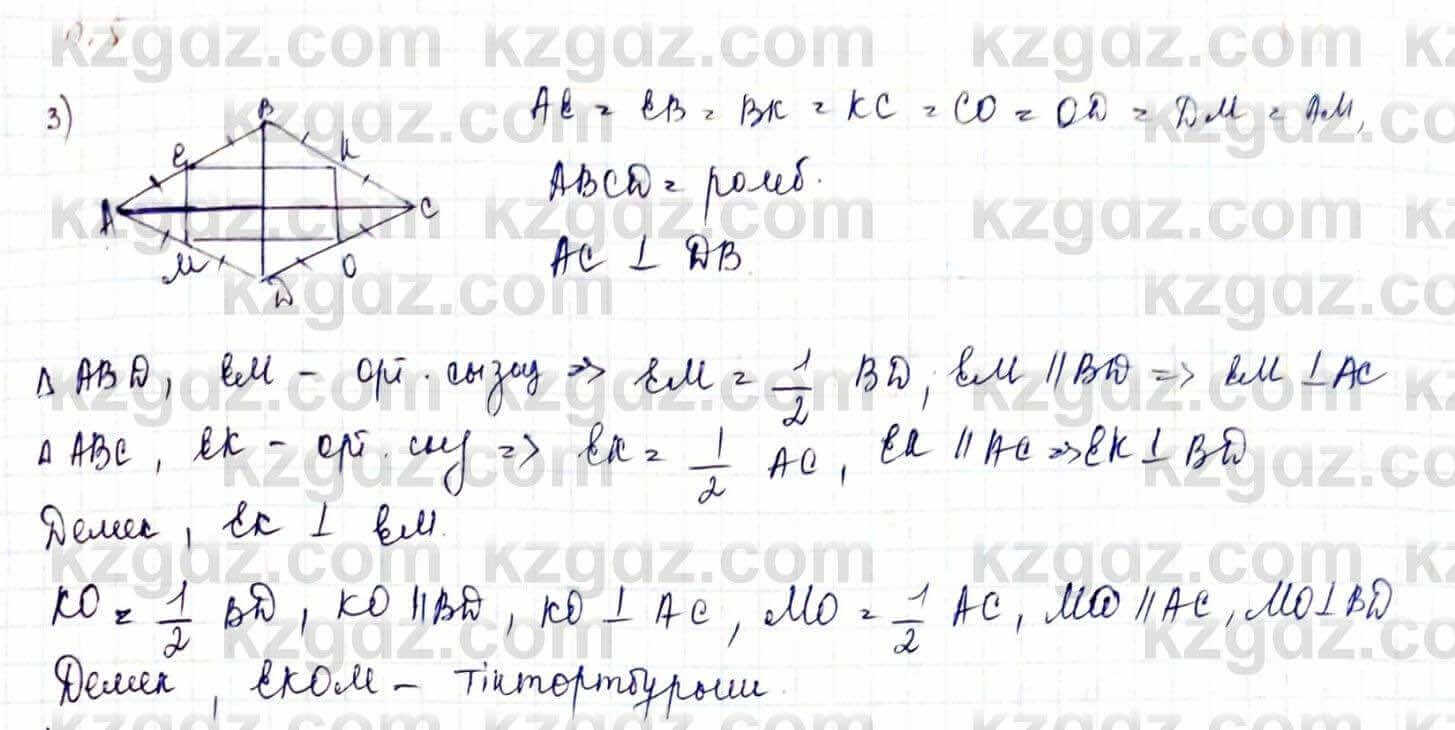 3)
B
E K
A C
M O
D
AE = EB = BK = KC = CO = OD = DM = AM,
ABCD = ромб.
AC ⊥ DB
Δ ABD, EM – орт. сызығ => EM = 1/2 BD, EM || BD => EM ⊥ AC
Δ ABC, EK – орт. сыз => EK = 1/2 AC, EK || AC => EK ⊥ BD
Демек, EK ⊥ EM.
KO = 1/2 BD, KO || BD, KO ⊥ AC, MO = 1/2 AC, MO || AC, MO ⊥ BD
Демек, EKOM – тіктөртбұрыш.
kzgdz.com